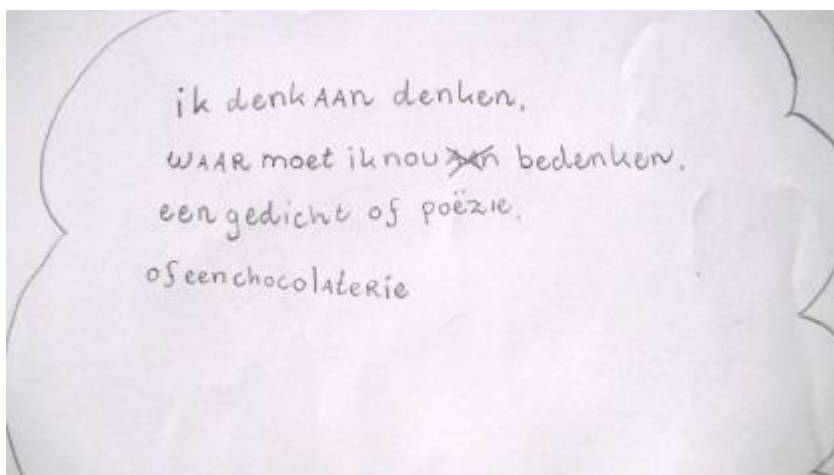 ik denk AAn denken.
WAAR moet ik nou bedenken.
een gedicht of poëzie.
of een chocolAteRie